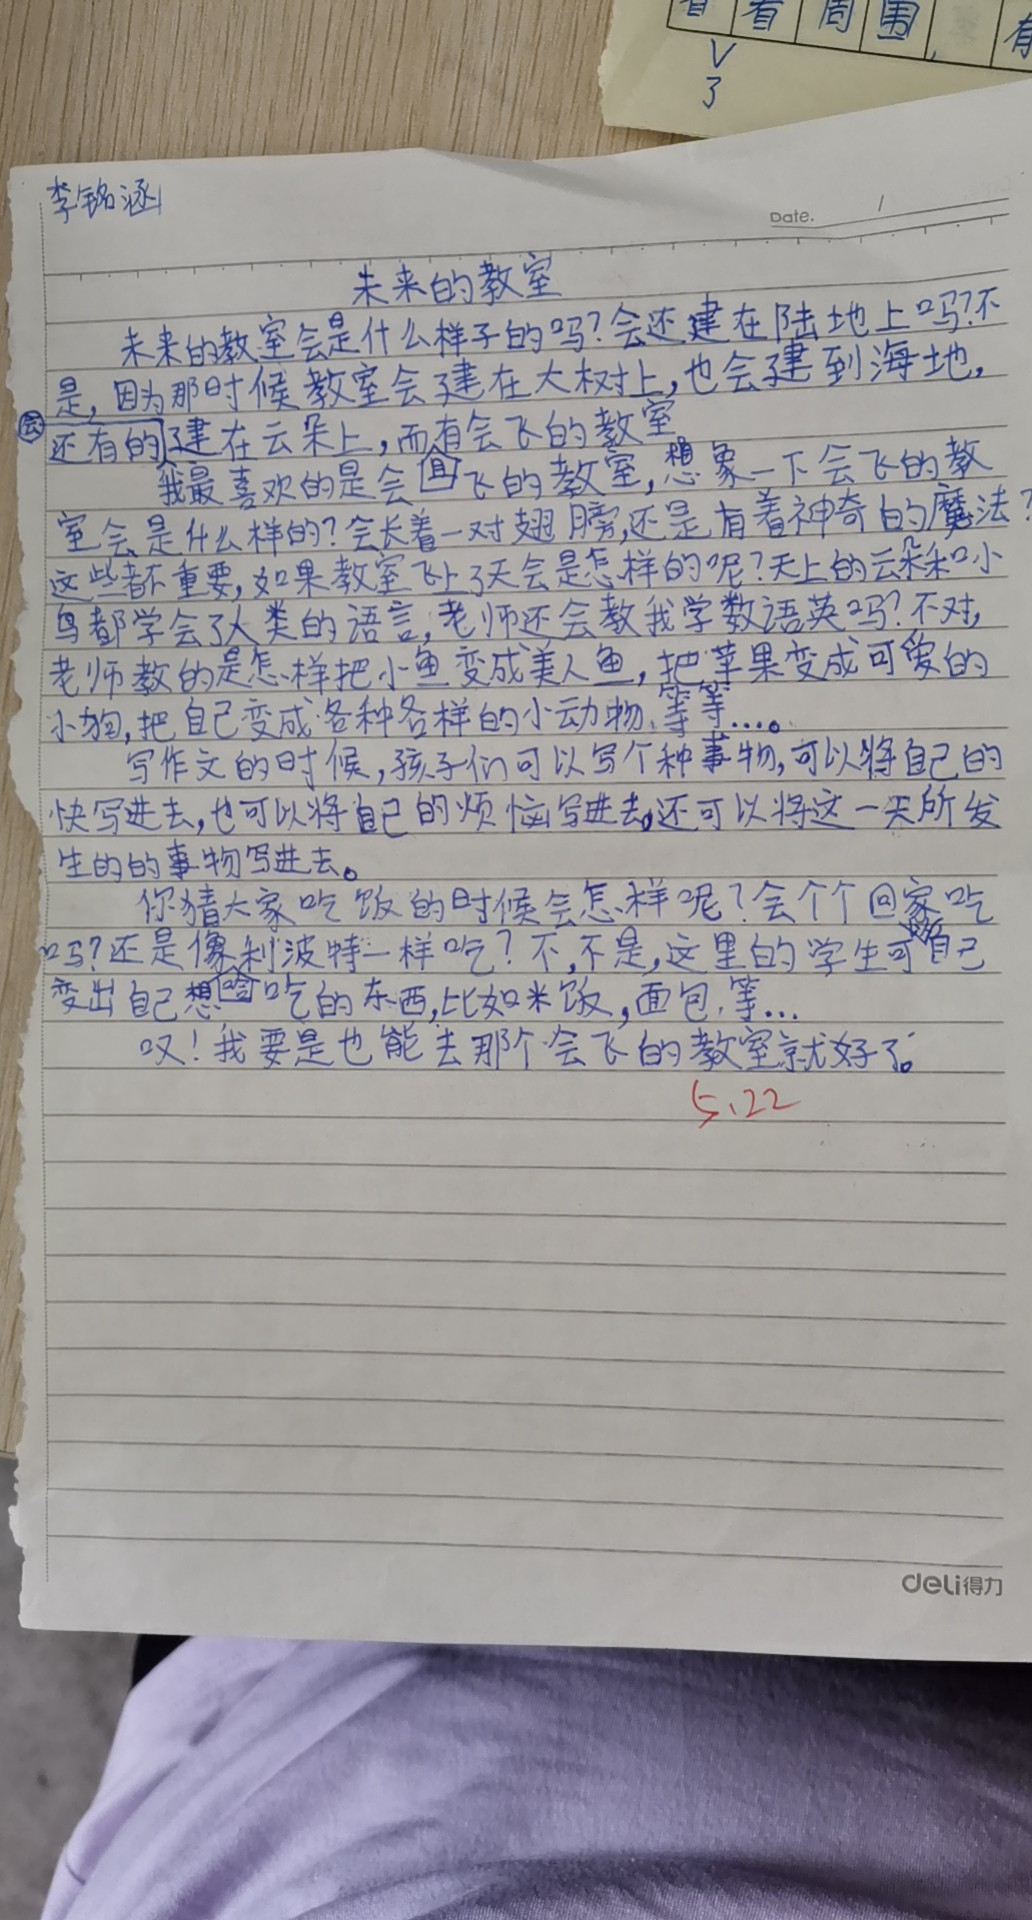 看看周围,有
3
李铭涵
Date.
未来的教室
未来的教室会是什么样子的吗?会还建在陆地上吗?不
是,因为那时候教室会建在大树上,也会建到海地,
会
还有的建在云朵上,而有会飞的教室
我最喜欢的是会飞的教室,想象一下会飞的教
室会是什么样的?会长着一对翅膀,还是有着神奇的魔法?
这些都不重要,如果教室飞上了天会是怎样的呢?天上的云朵和小
鸟都学会了人类的语言,老师还会教我学数语英吗?不对,
老师教的是怎样把小鱼变成美人鱼,把苹果变成可爱的
小狗,把自己变成各种各样的小动物、等等....。
写作文的时候,孩子们可以写个种事物,可以将自己的
快写进去,也可以将自己的烦恼写进去。还可以将这一天所发
生的的事物写进去。
你猜大家吃饭的时候会怎样呢?会个个回家吃
吗?还是像利波特一样吃?不,不是,这里的学生可自己
变出自己想吃的东西,比如米饭,面包,等...
叹!我要是也能去那个会飞的教室就好了。
5.22
deli得力